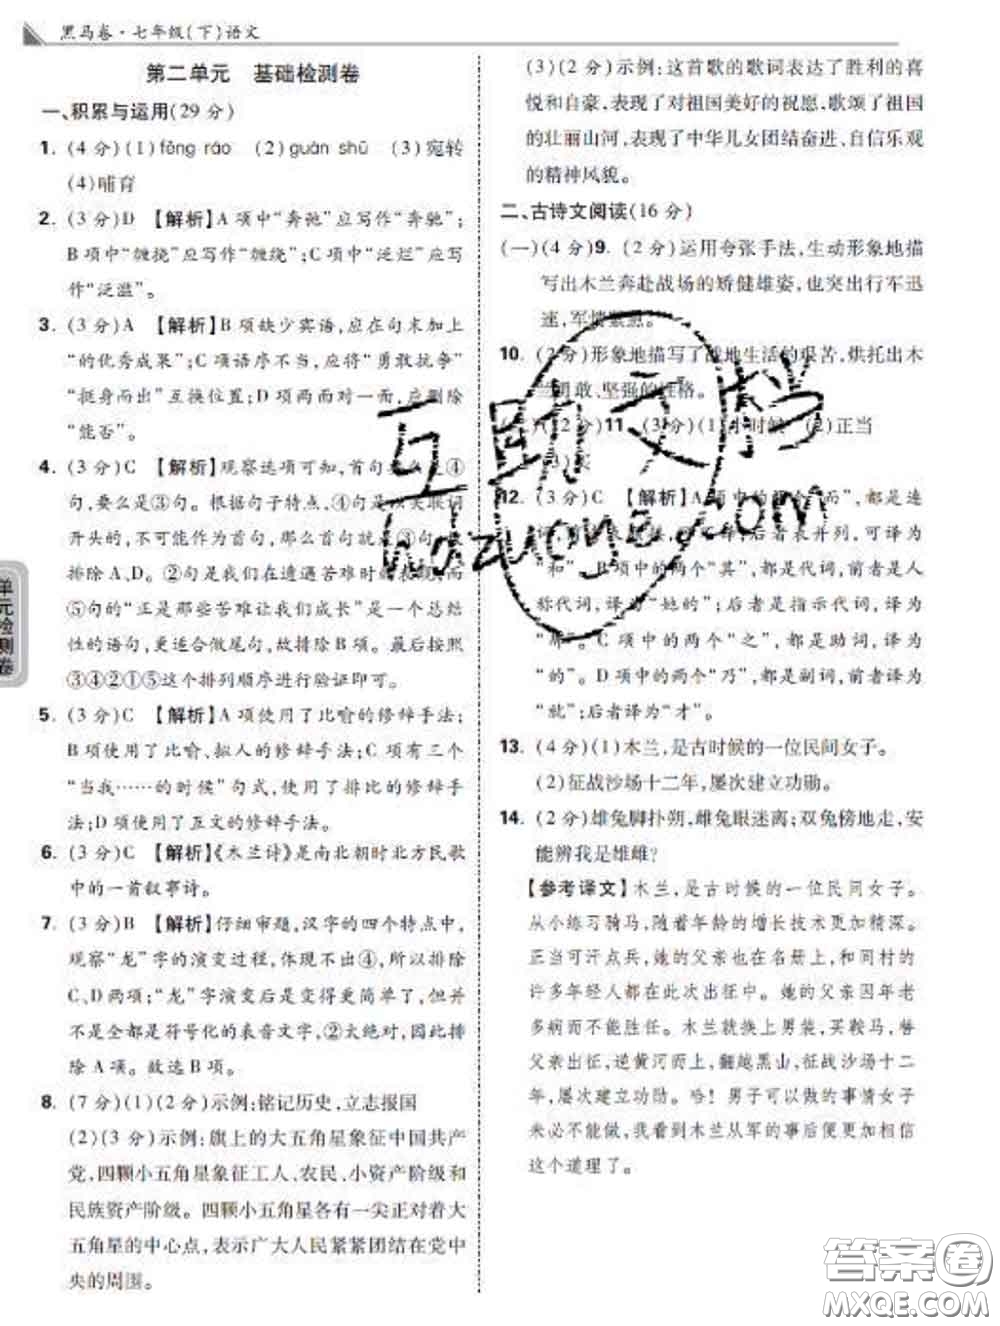 黑马卷·七年级(下)语文
第二单元 基础检测卷
一、积累与运用(29分)
1. (4分)(1)fēng ráo (2)guàn shū (3)宛转
(4)哺育
2. (3分)D 【解析】A项中“奔弛”应写作“奔驰”;
B项中“缠挠”应写作“缠绕”;C项中“泛烂”应写
作“泛滥”。
3. (3分)A 【解析】B项缺少宾语,应在句末加上
“的优秀成果”;C项语序不当,应将“勇敢抗争”
“挺身而出”互换位置;D项两面对一面,应删除
“能否”。
4. (3分)C 【解析】观察选项可知,首句要么是④
句,要么是③句。根据句子特点,④句是以关联词
开头的,不可能作为首句,那么首句就是③句,
排除A、D。②句是我们在遭遇苦难时的表现,而
⑤句的“正是那些苦难让我们成长”是一个总结
性的语句,更适合做尾句,故排除B项。最后按照
③④②①⑤这个排列顺序进行验证即可。
5. (3分)C 【解析】A项使用了比喻的修辞手法;
B项使用了比喻、拟人的修辞手法;C项有三个
“当我……的时候”句式,使用了排比的修辞手
法;D项使用了互文的修辞手法。
6. (3分)C 【解析】《木兰诗》是南北朝时北方民歌
中的一首叙事诗。
7. (3分)B 【解析】仔细审题,汉字的四个特点中,
观察“龙”字的演变过程,体现不出④,所以排除
C、D两项;“龙”字演变后是变得更简单了,但并
不是全部是符号化的表音文字,②太绝对,因此排
除A项。故选B项。
8. (7分)(1)(2分)示例:铭记历史,立志报国
(2)(3分)示例:旗上的大五角星象征中国共产
党,四颗小五角星象征工人、农民、小资产阶级和
民族资产阶级。四颗小五角星各有一尖正对着大
五角星的中心点,表示广大人民紧紧团结在党中
央的周围。
(3)(2分)示例:这首歌的歌词表达了胜利的喜
悦和自豪,表现了对祖国美好的祝愿,歌颂了祖国
的壮丽山河,表现了中华儿女团结奋进、自信乐观
的精神风貌。
二、古诗文阅读(16分)
(一)(4分)9. (2分)运用夸张手法,生动形象地描
写出木兰奔赴战场的矫健雄姿,也突出行军迅
速,军情紧急。
10. (2分)形象地描写了战地生活的艰苦,烘托出木
兰勇敢、坚强的性格。
(12分)11. (3分)(1)小时候 (2)正当
12. (3分)C 【解析】A项中的两个“而”,都是连
词,后者表并列,可译为
“和”。B项中的两个“其”,都是代词,前者是人
称代词,译为“她的”;后者是指示代词,译为
“那”。C项中的两个“之”,都是助词,译为
“的”。D项中的两个“乃”,都是副词,前者译为
“就”;后者译为“才”。
13. (4分)(1)木兰,是古时候的一位民间女子。
(2)征战沙场十二年,屡次建立功勋。
14. (2分)雄兔脚扑朔,雌兔眼迷离;双兔傍地走,安
能辨我是雄雌?
【参考译文】木兰,是古时候的一位民间女子。
从小练习骑马,随着年龄的增长技术更精深。
正当可汗点兵,她的父亲也在名册上,和同村的
许多年轻人都在此次出征中。她的父亲因年老
多病而不能胜任。木兰就换上男装,买鞍马,替
父亲出征,逆黄河而上,翻越黑山,征战沙场十二
年,屡次建立功勋。哈!男子可以做的事情女子
未必不能做,我看到木兰从军的事后便更加相信
这个道理了。
单元检测卷
互助文档
hdzuoye.com
答案卷
MXQE.COM